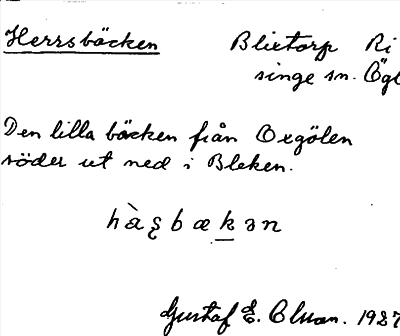 Herrsbäcken Blixtorp Ri
singe sn. Ög
Den lilla bäcken från Oxgölen
söder ut ned i Bleken.
Gustaf E. 1927